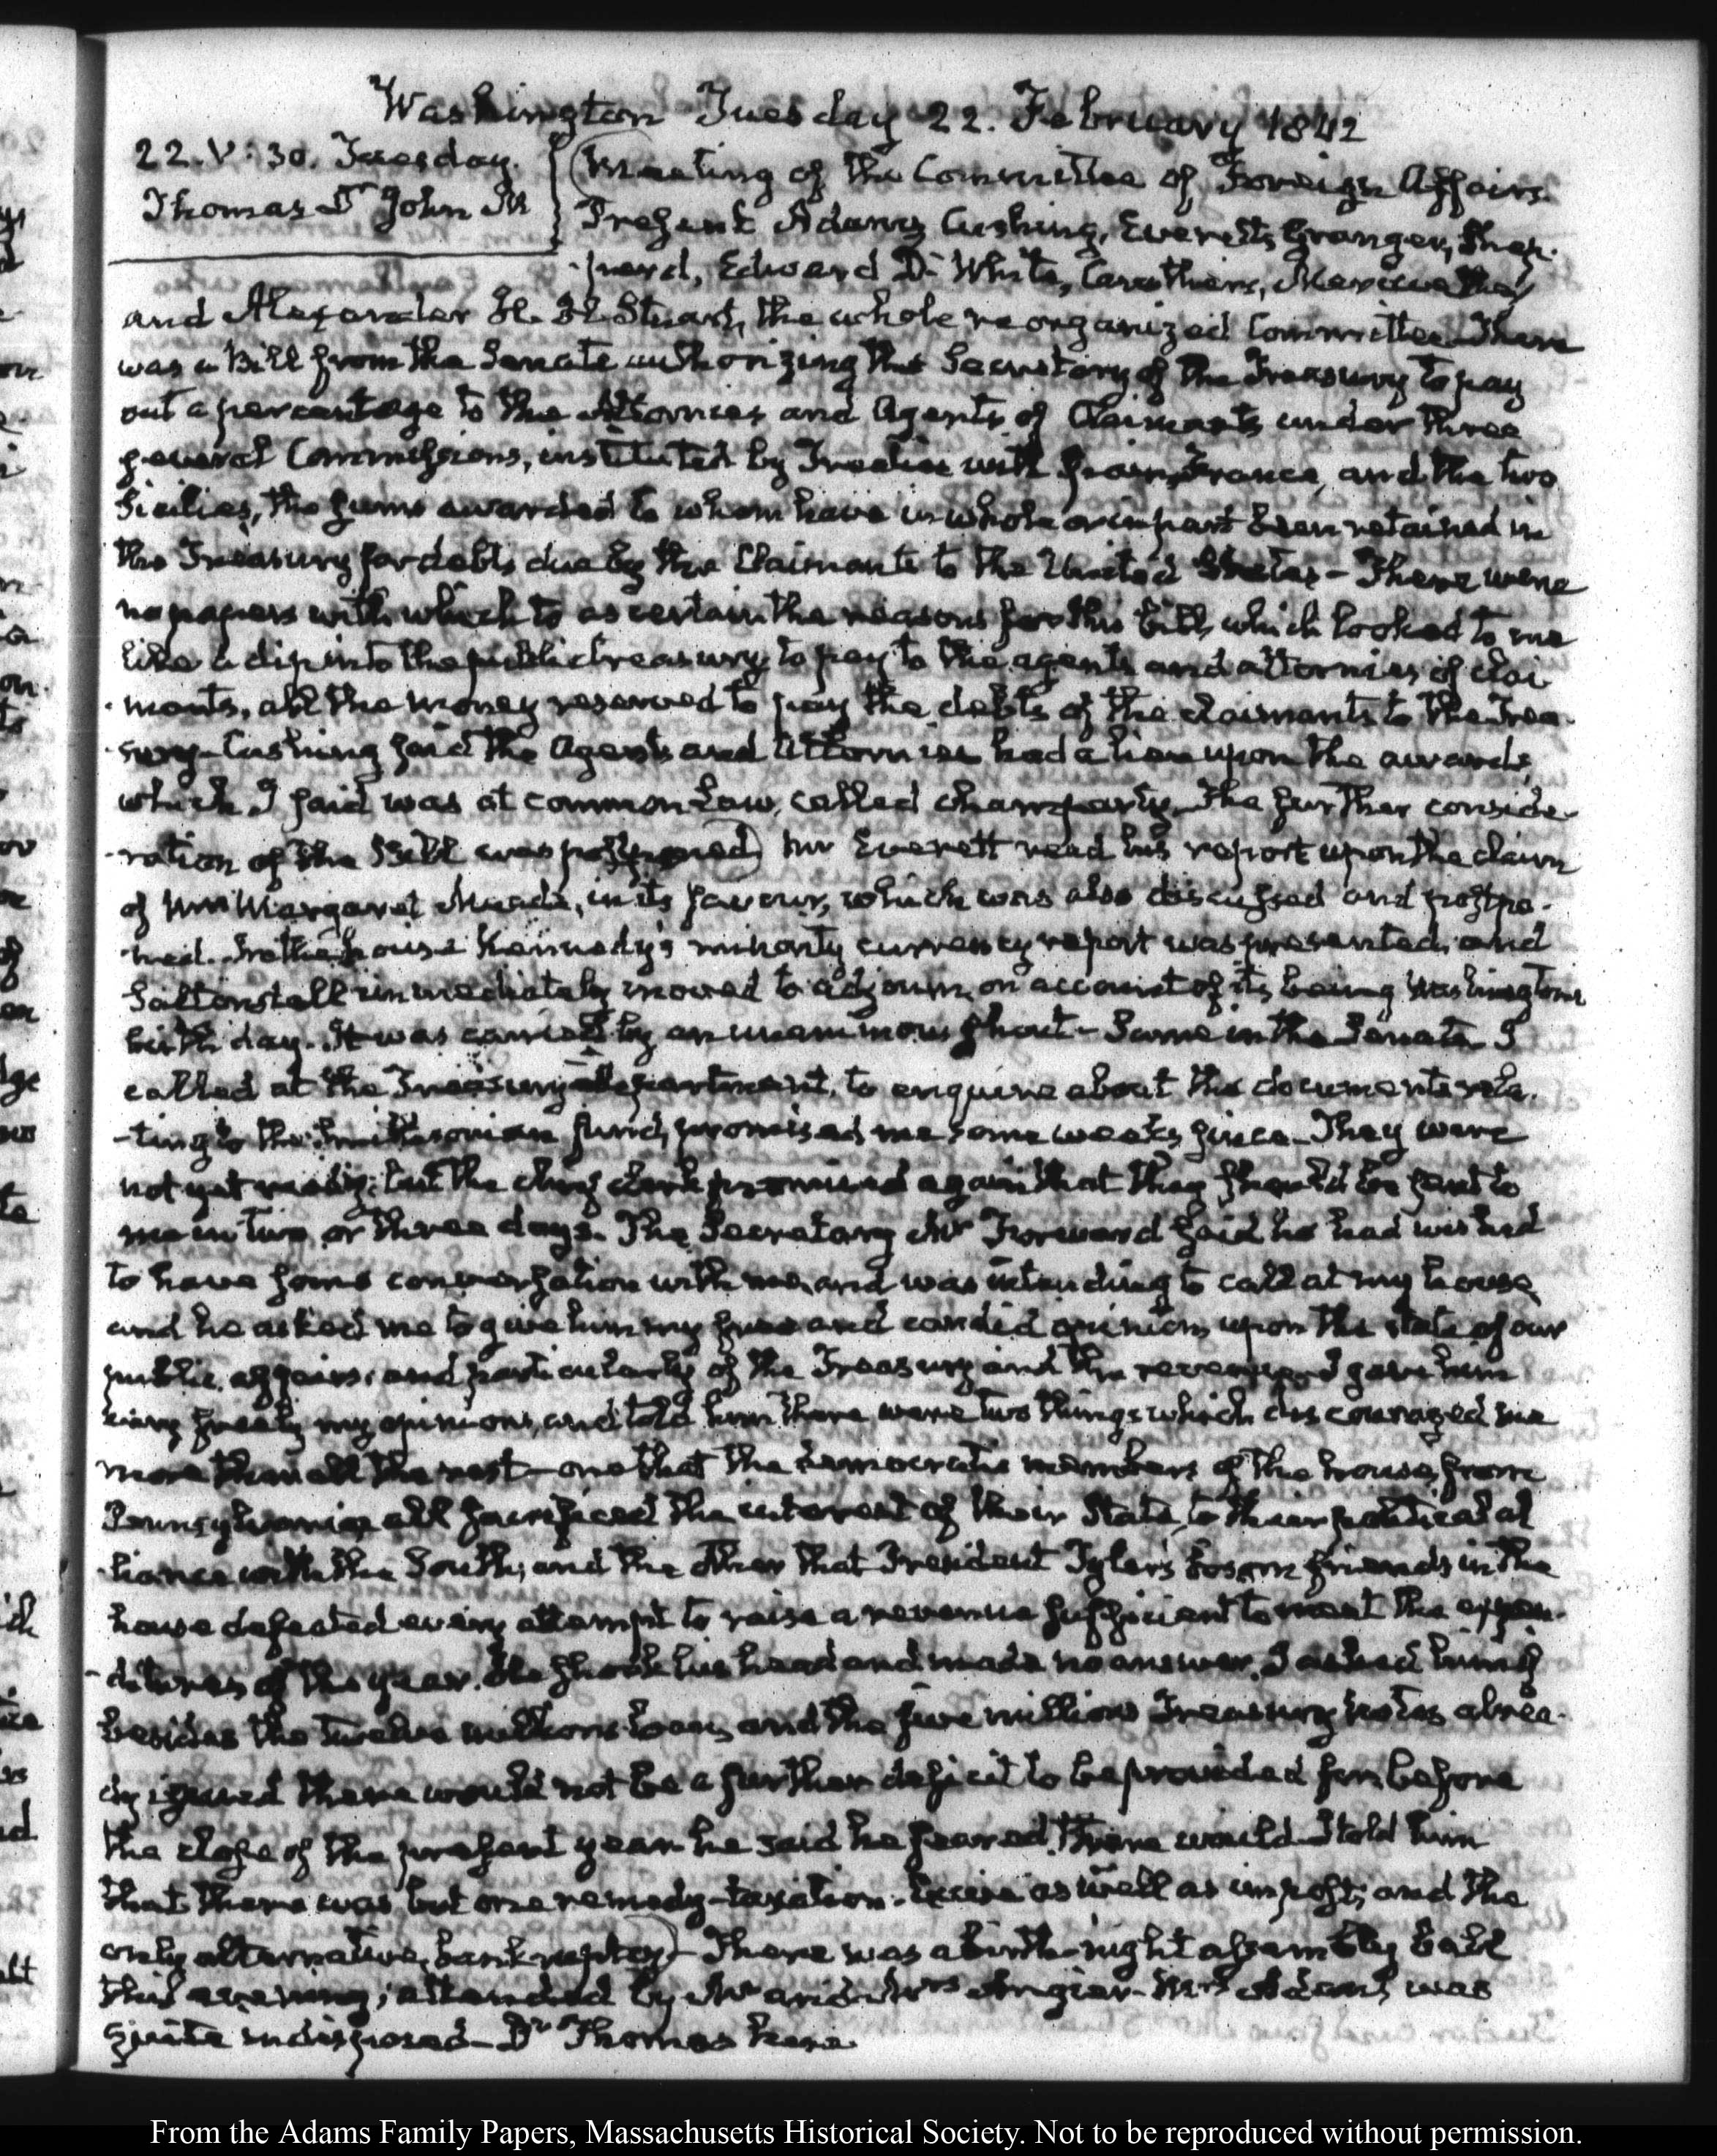 Washington Tuesday 22. February 1842
22. V:30. Tuesday.
Thomas Dr John M
Meeting of the Committee of Foreign Affairs.
Present Adams, Cushing, Everett, Granger, Shep-
-perd, Edward D. White, Caruthers, Meriwether
and Alexander H. H. Stuart, the whole reorganized Committee. There
was a Bill from the Senate authorizing the Secretary of the Treasury to pay
out a percentage to the Attornies and Agents of Claimants under three
several Commissions, instituted by Treaties with Spain, France, and the two
Sicilies, the sums awarded to whom have in whole or in part been retained in
the Treasury for debts due by the Claimants to the United States – There were
no papers with which to ascertain the reasons for this bill, which looked to me
like a dip into the public treasury, to pay to the agents and attornies of clai
-mants, all the money reserved to pay the debts of the claimants to the Trea-
-sury – Cushing said the Agents and Attornies had a lien upon the awards,
which I said was at common Law, called champarty. The further conside-
-ration of the Bill was postponed) Mr Everett read his report upon the claim
of Mrs Margaret Meade, in its favour, which was also discussed and postpo-
-ned. In the house Kennedy's minority currency report was presented, and
Saltonstall immediately moved to adjourn, on account of its being Washington's
birth day. It was carried by an unanimous shout – Same in the Senate. I
called at the Treasury department, to enquire about the documents rela-
-ting to the Smithsonian fund, promised me some weeks since – They were
not yet ready; but the chief clerk promised again that they should be sent to
me in two or three days. The Secretary Mr Forward said he had wished
to have some conversation with me, and was intending to call at my house,
and he asked me to give him my free and candid opinion, upon the state of our
public affairs, and particularly of the Treasury and the revenue. I gave him
very freely my opinions, and told him there were two things which discouraged me
more than all the rest – one that the democratic members of the house, from
Pennsylvania all sacrificed the interest of their State, to their political al
-liance with the South; and the other that President Tyler's bosom friends in the
house defeated every attempt to raise a revenue sufficient to meet the expen-
-ditures of the year. He shook his head and made no answer. I asked him if
besides the twelve millions loan, and the five millions Treasury notes alrea-
dy issued there would not be a further deficit to be provided for, before
the close of the present year he said he feared there would – I told him
that there was but one remedy – taxation. Excise as well as impost; and the
only alternative, bankruptcy) – There was a birth-night assembly ball
this evening; attended by Mr and Mrs Angier – Mrs Adams was
quite indisposed – Dr Thomas here